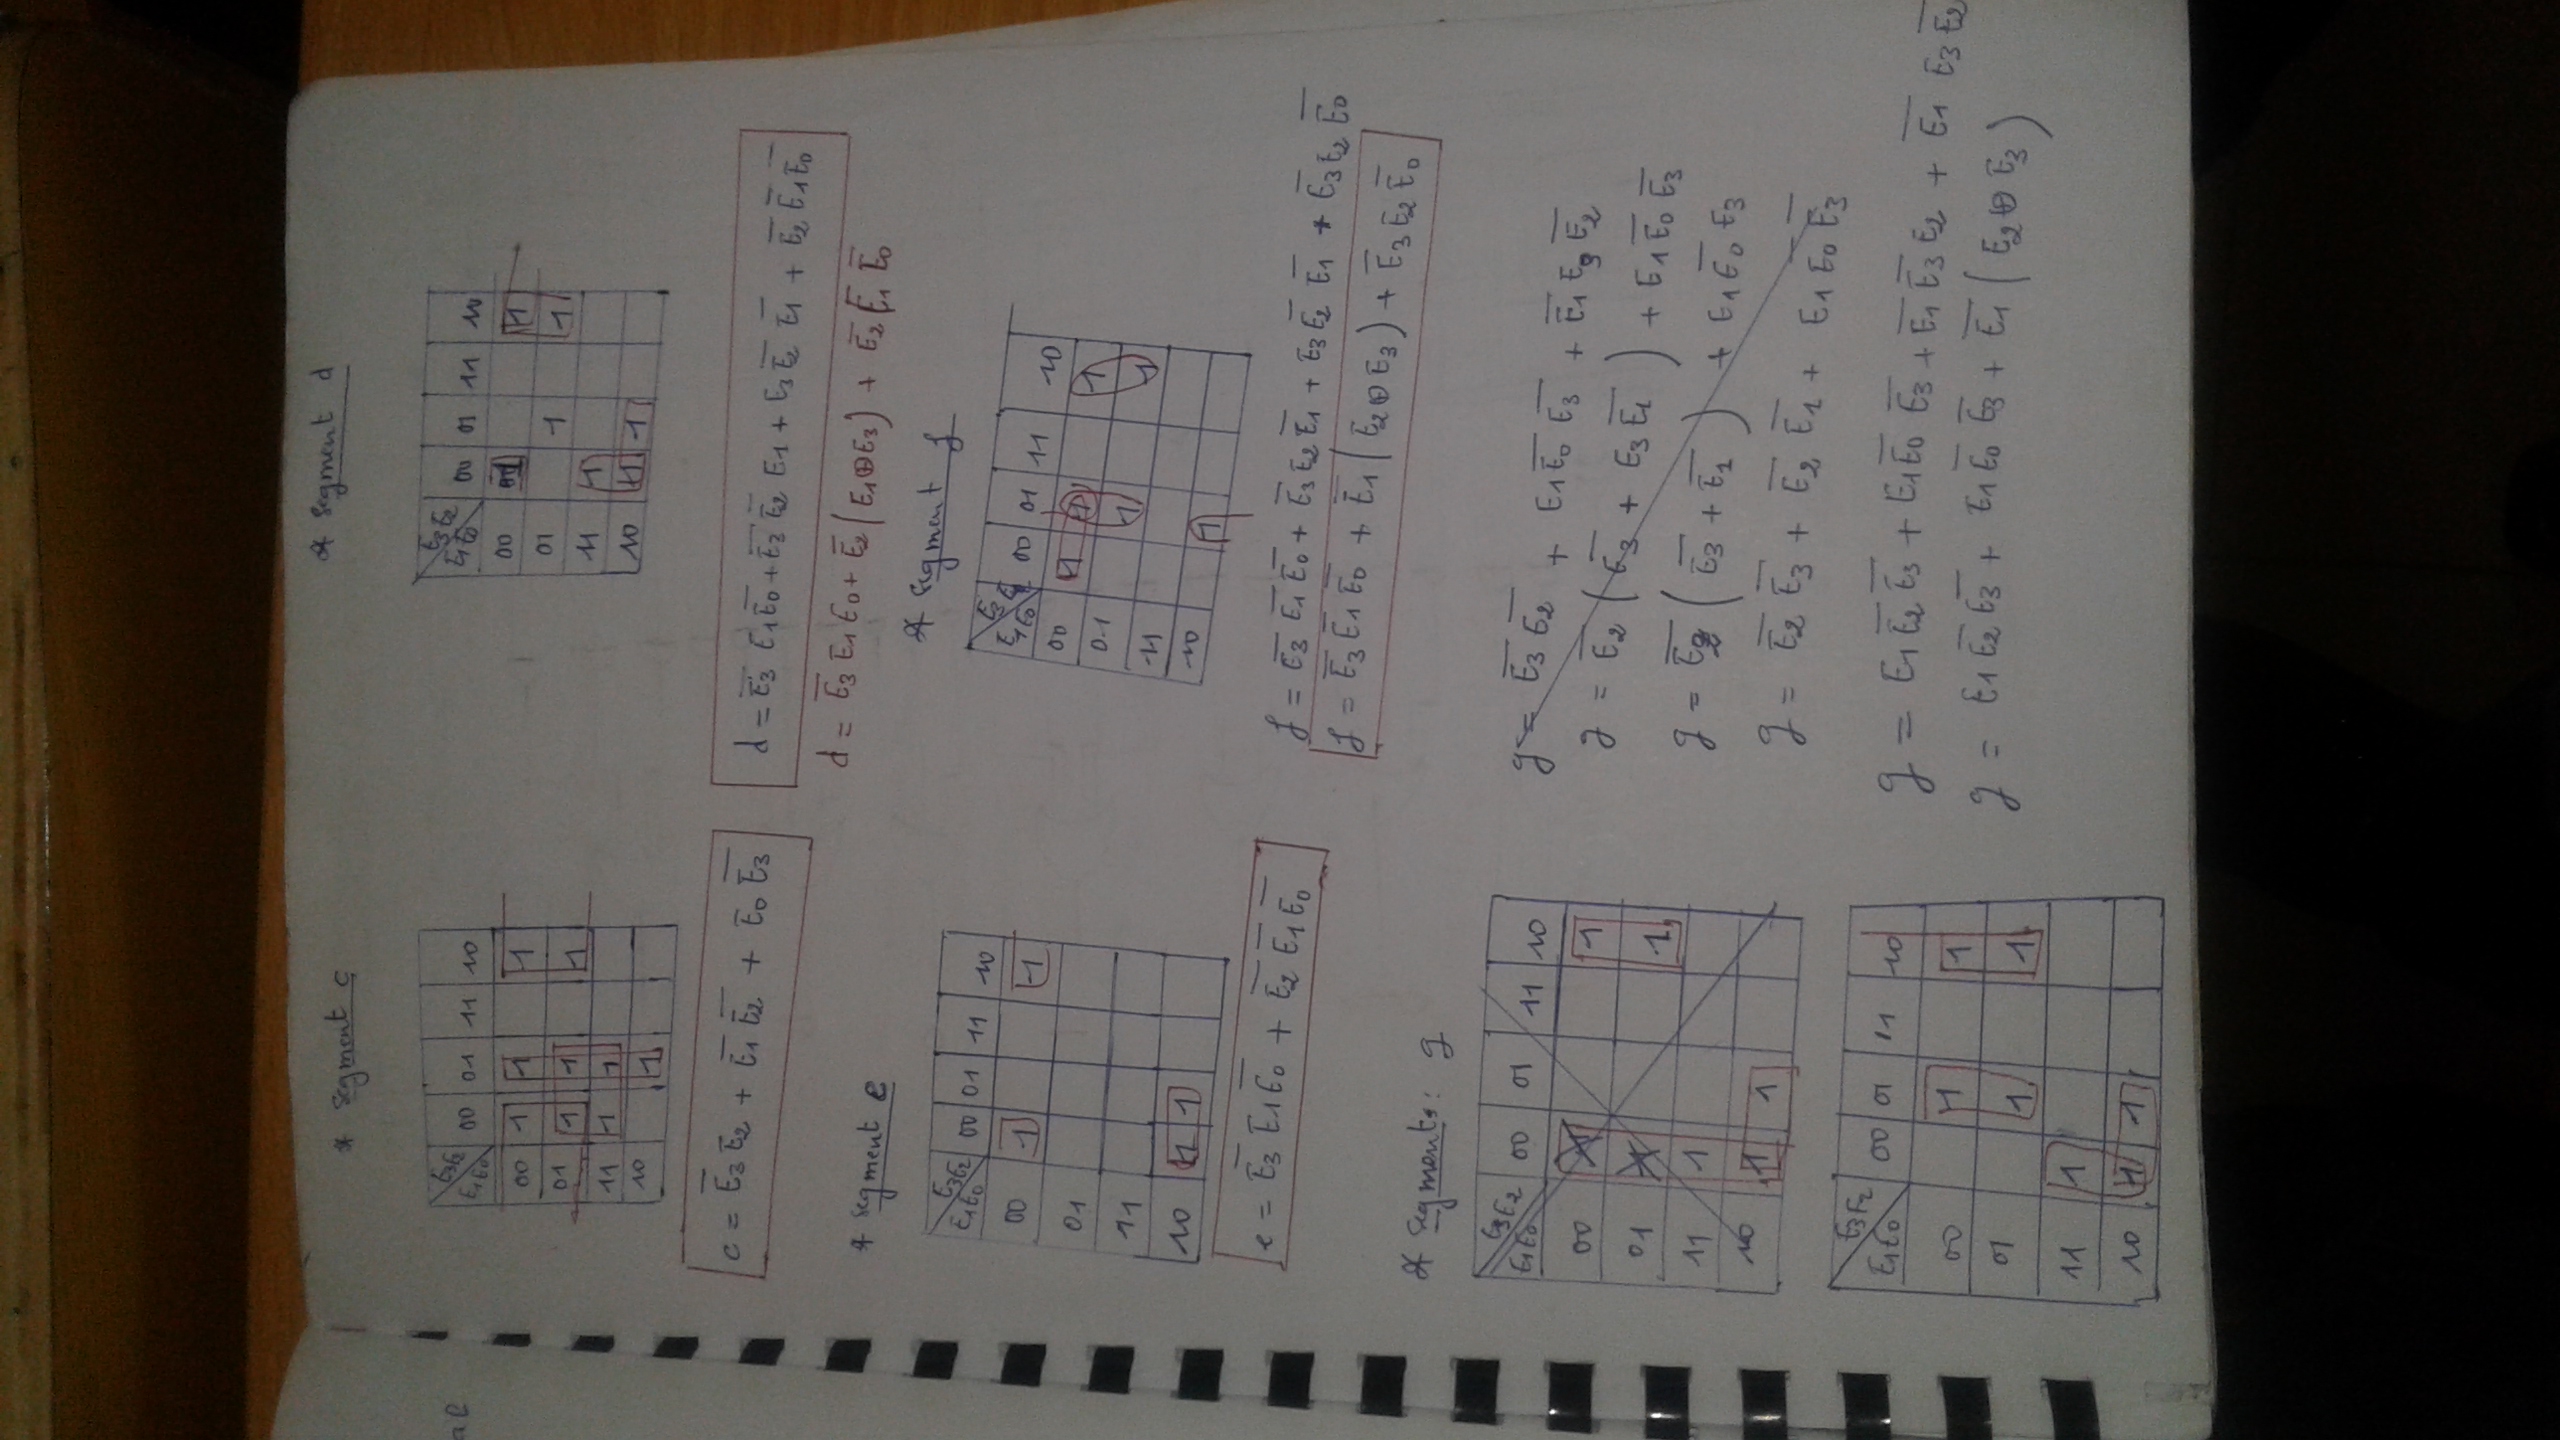 al
* Segment c
E3E2
E1E0 00 01 11 10
00 1 1 1
01 1 1 1
11 1 1
10 1
c = E̅3 E2 + E̅1 E̅2 + E0 E̅3
* Segment d
E3E2
E1E0 00 01 11 10
00 1 1
01 1 1
11 1
10 1 1
d = E̅3 E1E̅0 + E̅3 E̅2 E1 + E3 E̅2 E̅1 + E̅2 E̅1 E̅0
d = E̅3 E1 E0 + E̅2 (E1⊕E3) + E̅2 E̅1 E̅0
* Segment e
E3E2
E1E0 00 01 11 10
00 1 1
01
11
10 1 1
e = E̅3 E1E̅0 + E̅2 E̅1 E̅0
* Segment f
E3
E1E0 00 01 11 10
00 1 1 1
01 1 1
11
10 1
f = E̅3 E̅1 E̅0 + E̅3 E2 E̅1 + E3 E̅2 E̅1 + E̅3 E2 E̅0
f = E̅3 E̅1 E̅0 + E̅1 (E2 ⊕ E3) + E̅3 E2 E̅0
* Segments: g
E3E2
E1E0 00 01 11 10
00 1 1
01 1 1
11 1
10 1 1
g = E̅3 E̅2 + E1 E̅0 E̅3 + E̅1 E3 E̅2
g = E̅2 (E̅3 + E3 E̅1) + E1 E̅0 E̅3
g = E̅2 (E̅3 + E̅1) + E1 E̅0 E3
g = E̅2 E̅3 + E̅2 E̅1 + E1 E̅0 E̅3
E3E2
E1E0 00 01 11 10
00 1 1
01 1 1
11 1
10 1 1
g = E1 E̅2 E̅3 + E1E̅0 E̅3 + E̅1 E̅3 E2 + E̅1 E3 E̅2
g = E1 E̅2 E̅3 + E1 E̅0 E̅3 + E̅1 (E2 ⊕ E3)